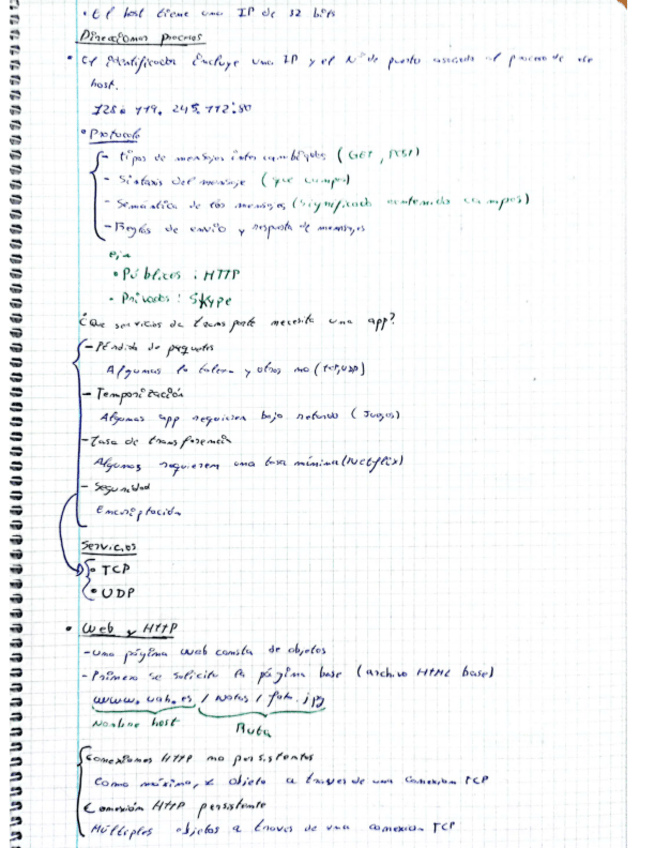 • El host tiene una IP de 32 bits
Direccionar procesos
• El identificador incluye una IP y el Nº de puerto asociado al proceso de ese
host.
128.119.245.112:80
• Protocolo
- tipos de mensajes intercambiados (GET, POST)
- Sintaxis del mensaje (que campos)
- Semántica de los mensajes (significado contenido campos)
- Reglas de envio y respuesta de mensajes
ej:
• Públicos: HTTP
• Privados: Skype
¿Que servicios de transporte necesita una app?
- Pérdida de paquetes
Algunas la toleran y otras no (tcp, udp)
- Temporización
Algunas app requieren bajo retardo (Juegos)
- Tasa de transferencia
Algunas requieren una tasa mínima (Netflix)
- Seguridad
Encriptación
Servicios
• TCP
• UDP
• Web y HTTP
- una página web consta de objetos
- Primero se solicita la página base (archivo HTML base)
www.uah.es / Notas / foto.jpg
Nombre host Ruta
Conexiones HTTP no persistentes
Como máximo, objeto a traves de una conexion TCP
Conexión HTTP persistente
Múltiples objetos a traves de una conexion TCP